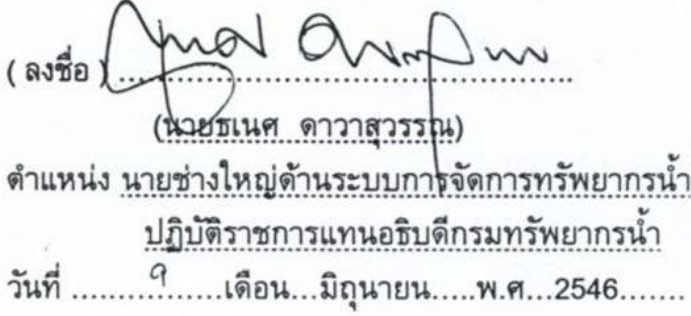 ( ลงชื่อ ) ..........................................................
(นายธเนศ ดาวาสุวรรณ)
ตำแหน่ง นายช่างใหญ่ด้านระบบการจัดการทรัพยากรน้ำ
ปฏิบัติราชการแทนอธิบดีกรมทรัพยากรน้ำ
วันที่ .............เดือน...มิถุนายน.....พ.ศ...2546.......